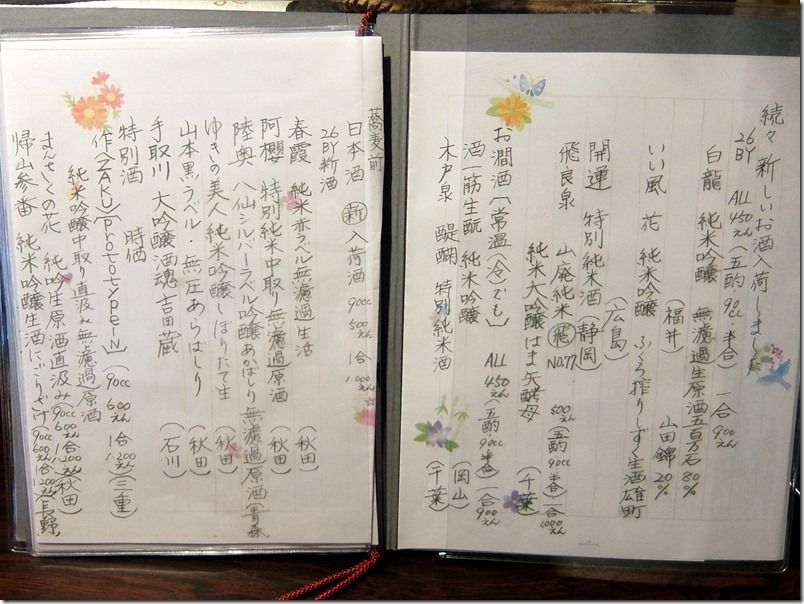 続々新しいお酒入荷しました
26BY ALL 450えん(五酌90cc・半合) 一合900えん
白龍 純米吟醸 無濾過生原酒五百万石80%
(福井) 山田錦20%
いい風 花 純米吟醸 ふくろ搾りしずく生酒雄町
(広島)
開運 特別純米酒 (静岡)
飛良泉 山廃純米 飛 NO.77 500えん(五酌90cc半合)一合1,000えん
純米大吟醸はま矢酵母 (千葉)
お燗酒[常温(冷)でも] ALL 450えん(五酌90cc半合)一合900えん
酒一筋生酛 純米吟醸 (岡山)
木戸泉 醍醐 特別純米酒 (千葉)
蕎麦前
日本酒 新入荷酒 90cc 500えん 1合 1,000えん
26BY新酒
春霞 純米赤ラベル無濾過生活 (秋田)
阿櫻 特別純米中取り無濾過原酒 (秋田)
陸奥 八仙シルバーラベル吟醸あらばしり無濾過原酒(青森)
ゆきの美人 純米吟醸しぼりたて生 (秋田)
山本黒ラベル・無圧あらばしり (秋田)
手取川 大吟醸酒魂 吉田蔵 (石川)
特別酒 時価
作(ZAKU)[prototype-N] (90cc 600えん 1合1,200えん)(三重)
純米吟醸中取り直汲み無濾過原酒
まんさくの花 純吟生原酒直汲み(90cc 600えん 1合1,200えん)(秋田)
帰山参番 純米吟醸生酒にごりざけ(90cc 600えん 1合1,200えん)(長野)